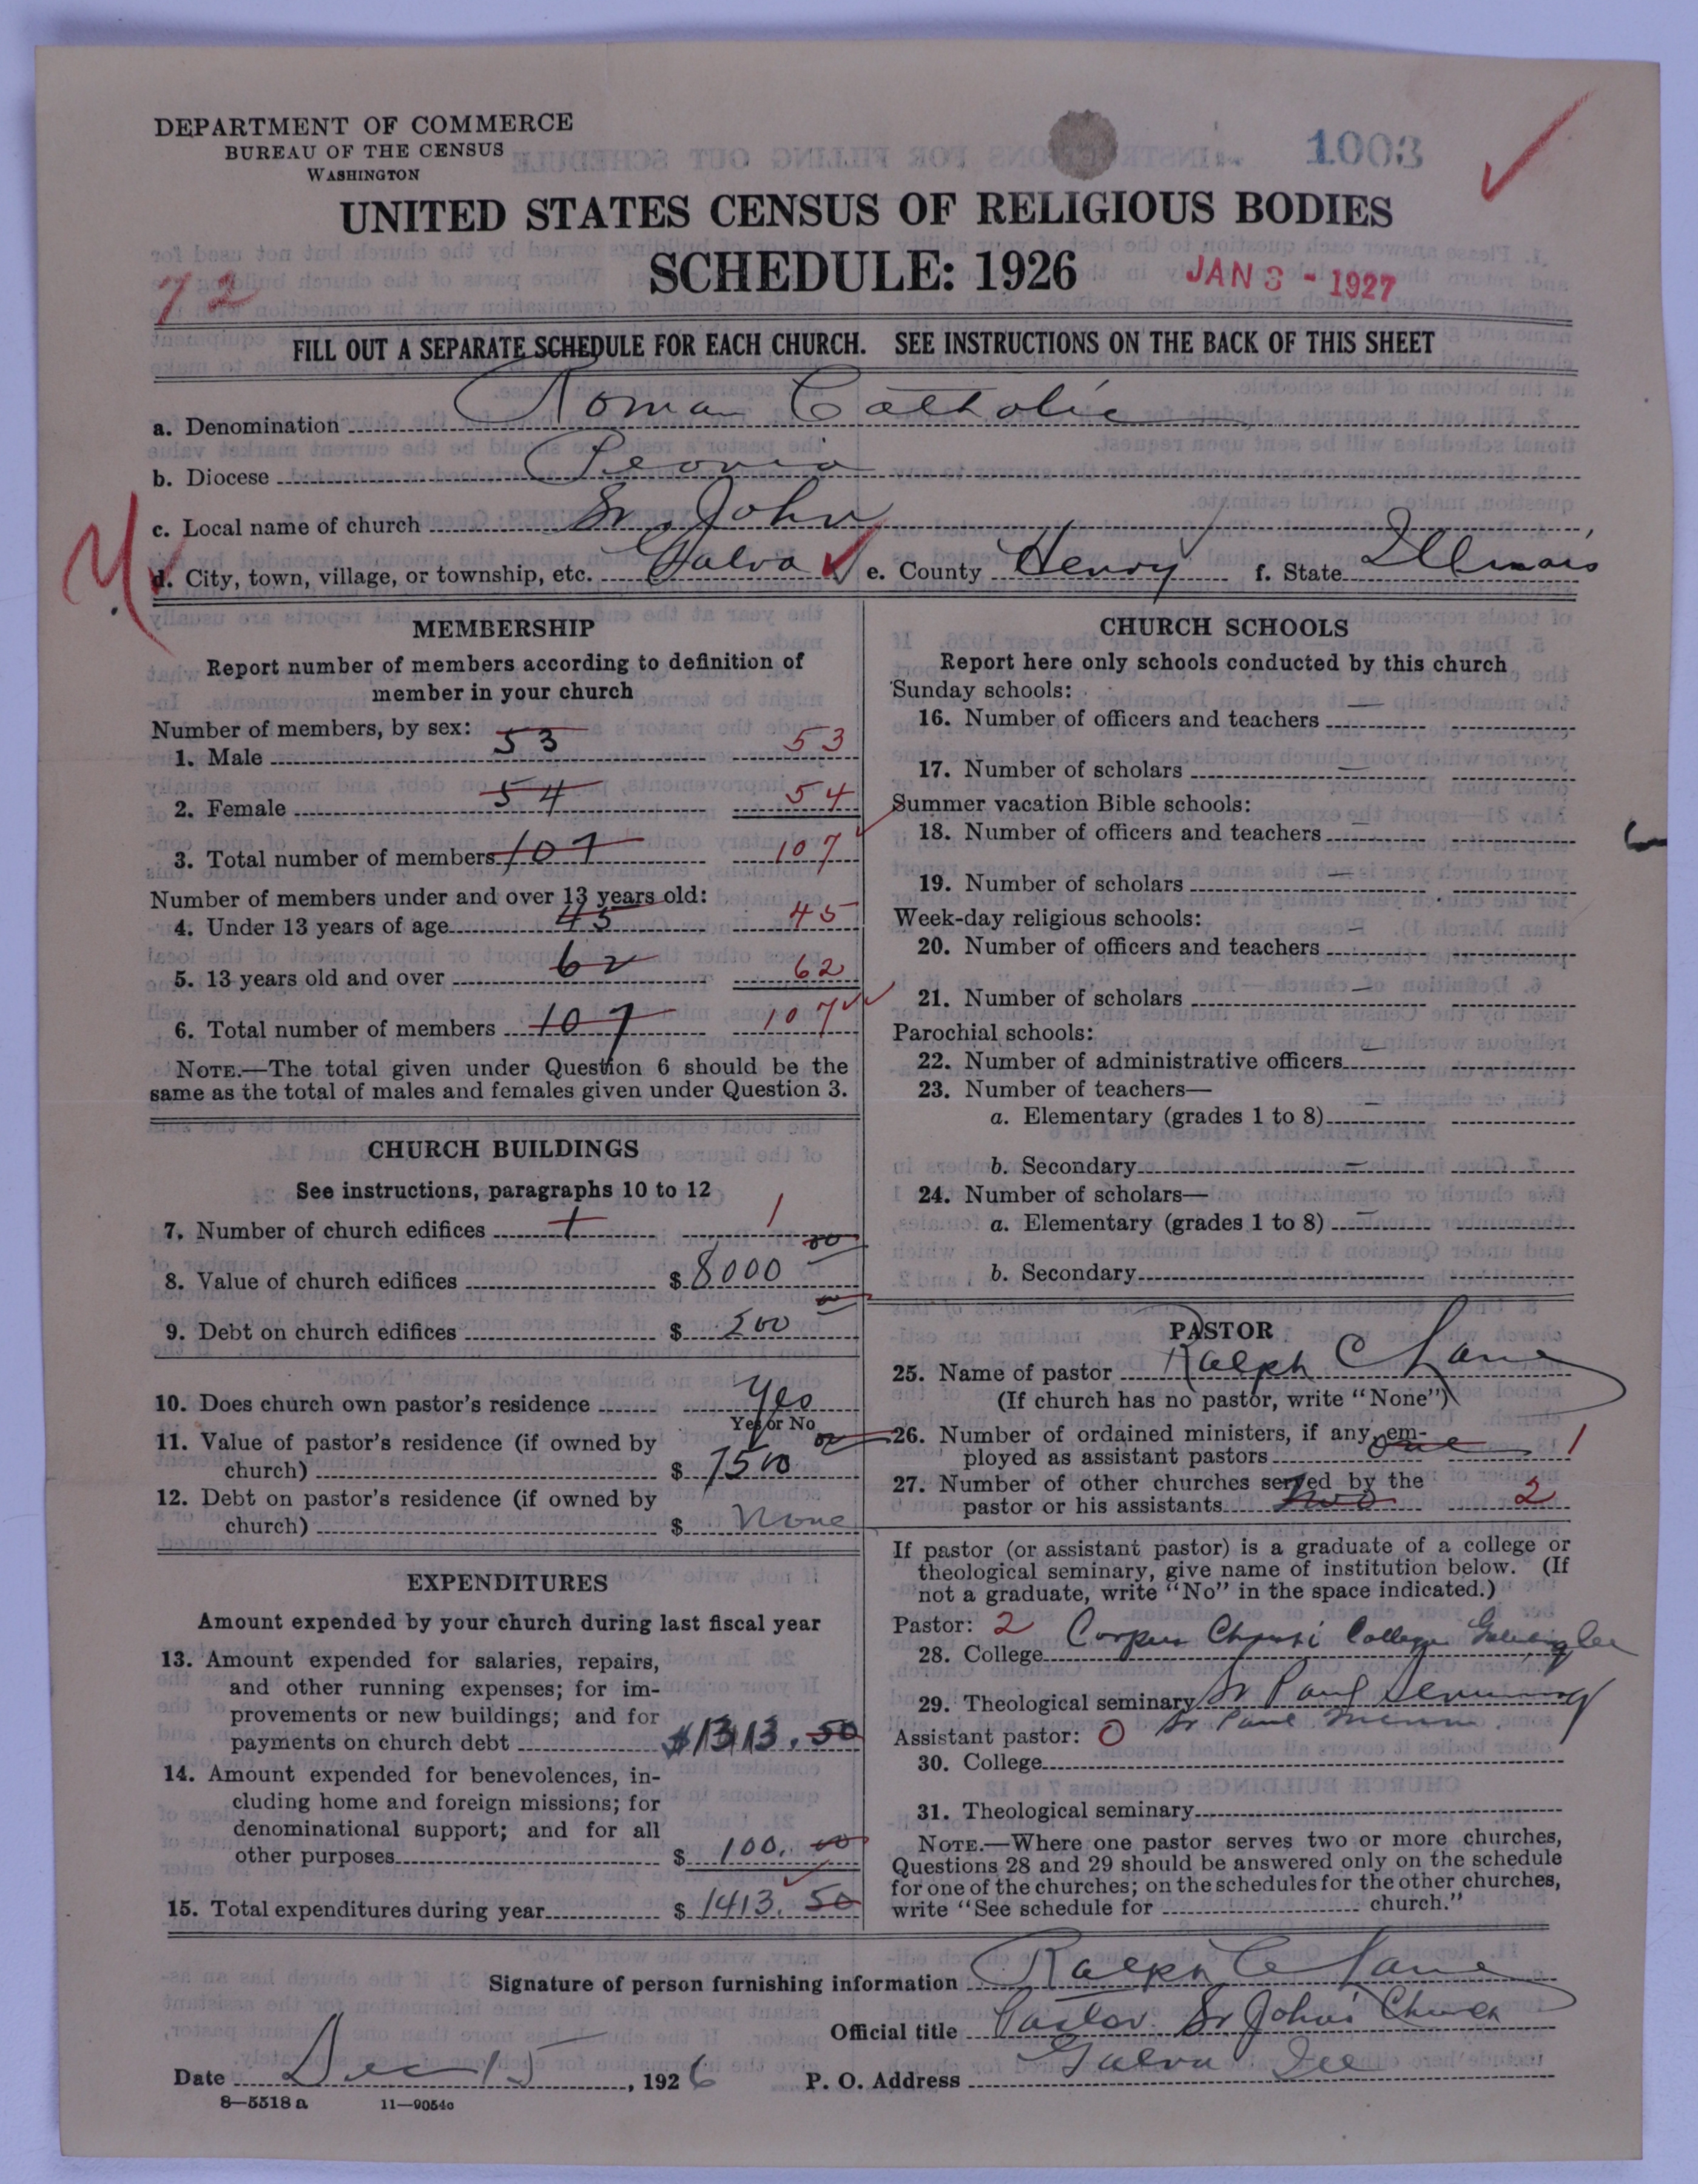 DEPARTMENT OF COMMERCE
BUREAU OF THE CENSUS
WASHINGTON
1003
UNITED STATES CENSUS OF RELIGIOUS BODIES
SCHEDULE: 1926
JAN 3 - 1927
72
FILL OUT A SEPARATE SCHEDULE FOR EACH CHURCH. SEE INSTRUCTIONS ON THE BACK OF THIS SHEET
a. Denomination Roman Catholic
b. Diocese Peoria
c. Local name of church St. John
d. City, town, village, or township, etc. Galva e. County Henry f. State Illinois
MEMBERSHIP
Report number of members according to definition of
member in your church
Number of members, by sex:
1. Male 53 53
2. Female 54 54
3. Total number of members 107 107
Number of members under and over 13 years old:
4. Under 13 years of age 45 45
5. 13 years old and over 62 62
6. Total number of members 107 107
NOTE.—The total given under Question 6 should be the
same as the total of males and females given under Question 3.
CHURCH BUILDINGS
See instructions, paragraphs 10 to 12
7. Number of church edifices 1 1
8. Value of church edifices $ 8000 00
9. Debt on church edifices $ 500 00
10. Does church own pastor's residence Yes
Yes or No
11. Value of pastor's residence (if owned by
church) $ 7500 00
12. Debt on pastor's residence (if owned by
church) $ None
EXPENDITURES
Amount expended by your church during last fiscal year
13. Amount expended for salaries, repairs,
and other running expenses; for im-
provements or new buildings; and for
payments on church debt $1313.50
14. Amount expended for benevolences, in-
cluding home and foreign missions; for
denominational support; and for all
other purposes $ 100.00
15. Total expenditures during year $ 1413.50
CHURCH SCHOOLS
Report here only schools conducted by this church
Sunday schools:
16. Number of officers and teachers —
17. Number of scholars —
Summer vacation Bible schools:
18. Number of officers and teachers —
19. Number of scholars —
Week-day religious schools:
20. Number of officers and teachers —
21. Number of scholars —
Parochial schools:
22. Number of administrative officers —
23. Number of teachers—
a. Elementary (grades 1 to 8) —
b. Secondary —
24. Number of scholars—
a. Elementary (grades 1 to 8) —
b. Secondary
PASTOR
25. Name of pastor Ralph C
(If church has no pastor, write "None")
26. Number of ordained ministers, if any, em-
ployed as assistant pastors one 1
27. Number of other churches served by the
pastor or his assistants two 2
If pastor (or assistant pastor) is a graduate of a college or
theological seminary, give name of institution below. (If
not a graduate, write "No" in the space indicated.)
Pastor: 2
28. College Corpus Christi College Galesburg Ill
29. Theological seminary St Paul Seminary
St Paul Minn.
Assistant pastor: 0
30. College
31. Theological seminary
NOTE.—Where one pastor serves two or more churches,
Questions 28 and 29 should be answered only on the schedule
for one of the churches; on the schedules for the other churches,
write "See schedule for church."
Signature of person furnishing information Ralph C
Official title Pastor St John's Church
Date Dec 15, 1926 P. O. Address Galva Ill
8—5518 a 11—9054c